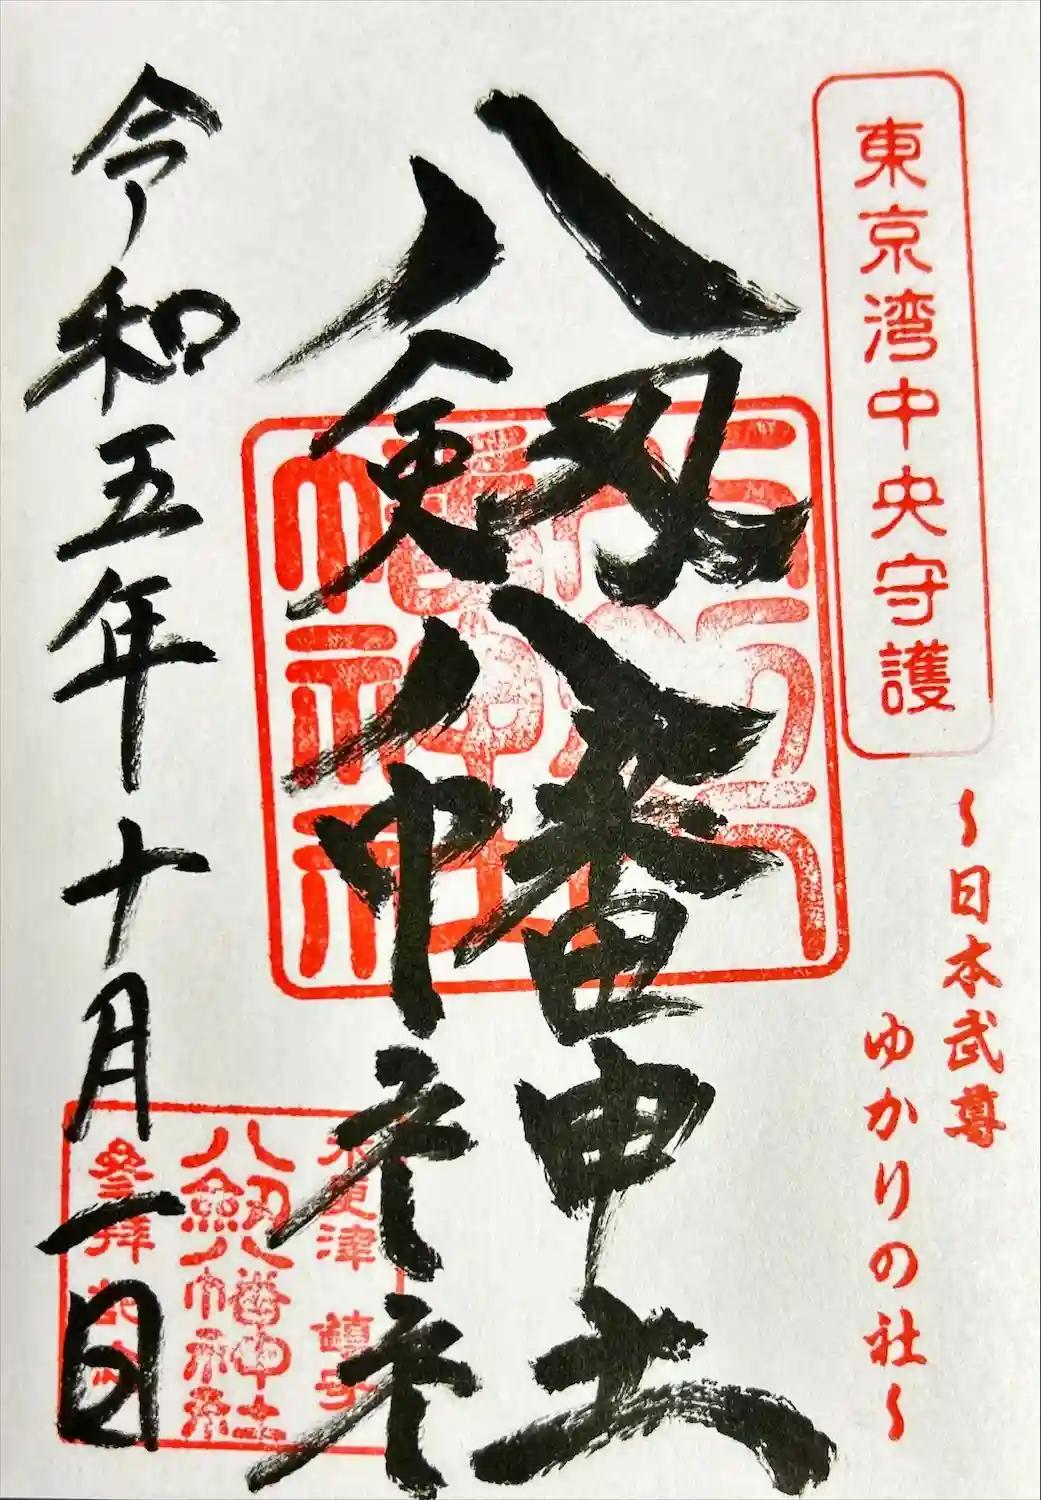 東京湾中央守護
〜日本武尊
ゆかりの社〜
八劔八幡神社
八劔八幡神社
木更津 鎮守
八劔八幡神社
参拝記念
令和五年十月一日